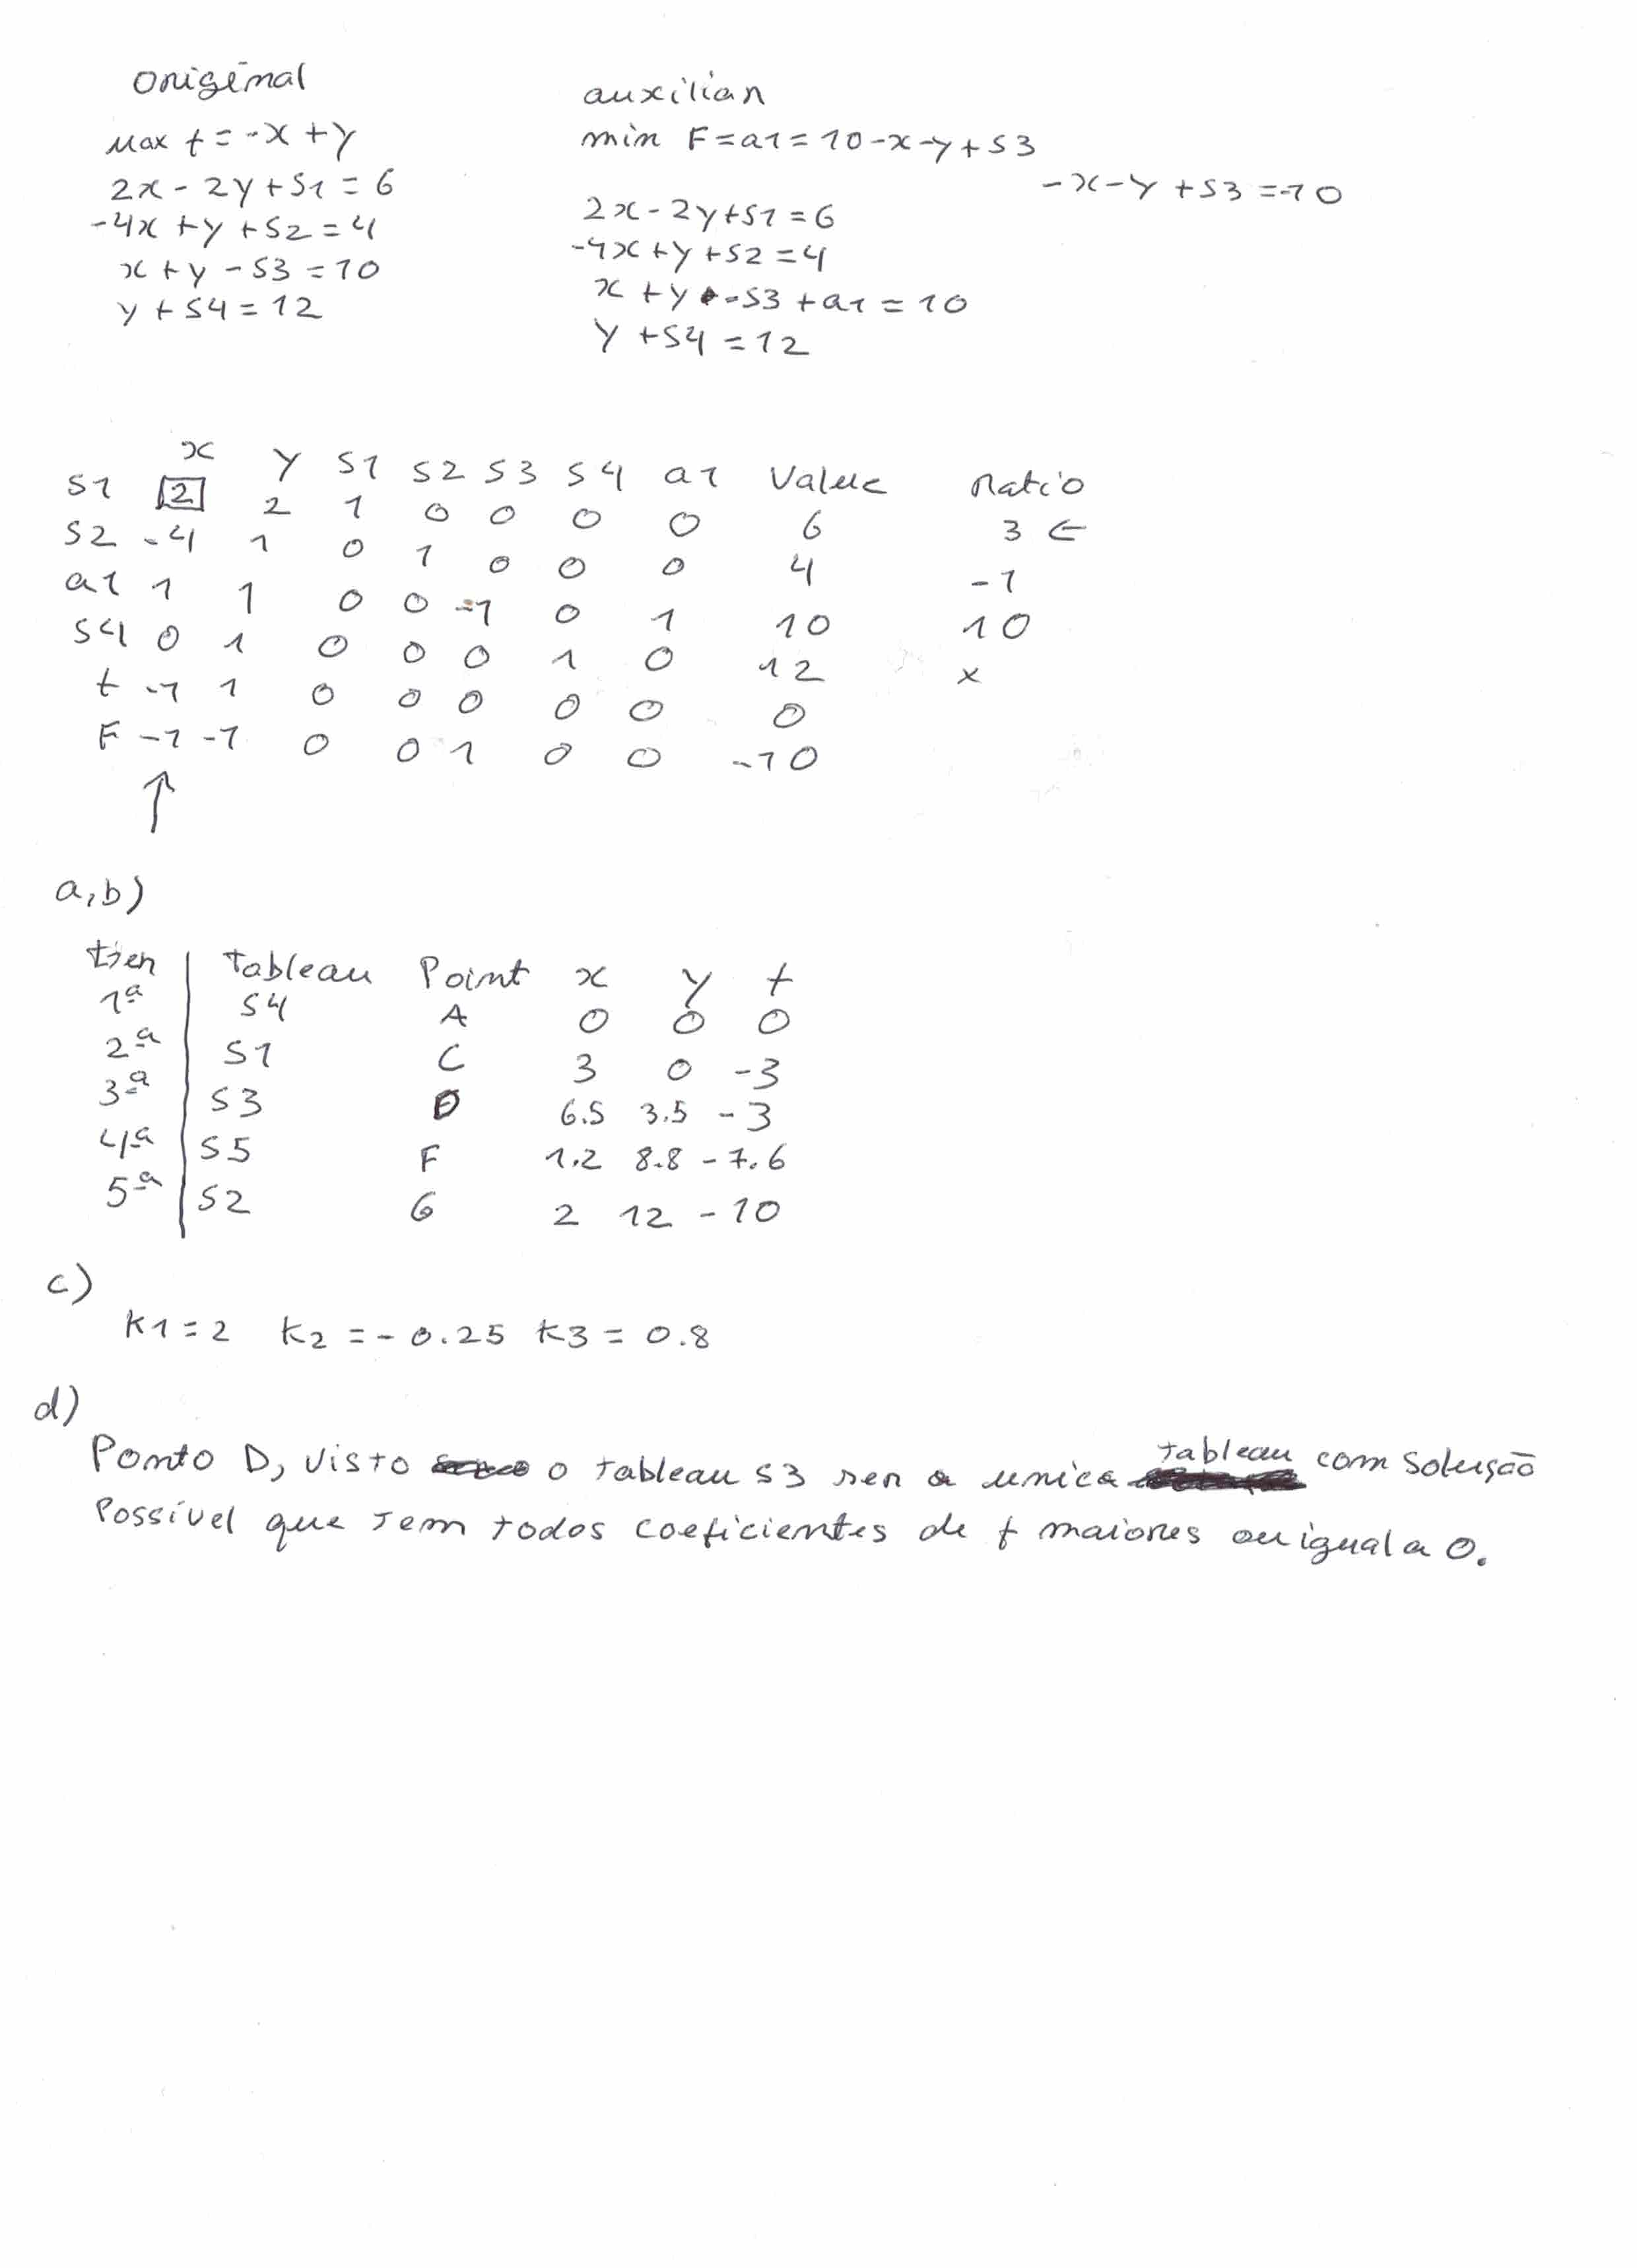 original
Max t = -x + y
2x - 2y + S1 = 6
-4x + y + S2 = 4
x + y - S3 = 10
y + S4 = 12
auxiliar
min F = a1 = 10 - x - y + S3
-x - y + S3 = -10
2x - 2y + S1 = 6
-4x + y + S2 = 4
x + y - S3 + a1 = 10
y + S4 = 12
x y S1 S2 S3 S4 a1 Value ratio
S1 2 2 1 0 0 0 0 6 3 ←
S2 -4 1 0 1 0 0 0 4 -1
a1 1 1 0 0 -1 0 1 10 10
S4 0 1 0 0 0 1 0 12 x
t -1 1 0 0 0 0 0 0
F -1 -1 0 0 1 0 0 -10
↑
a,b)
Tableau Point x y t
1ª S4 A 0 0 0
2ª S1 C 3 0 -3
3ª S3 D 6.5 3.5 -3
4ª S5 F 1.2 8.8 -7.6
5ª S2 G 2 12 -10
c)
K1 = 2 K2 = -0.25 K3 = 0.8
d)
Ponto D, visto o tableau S3 ser a unica tableau com solução
Possível que tem todos coeficientes de f maiores ou igual a 0.